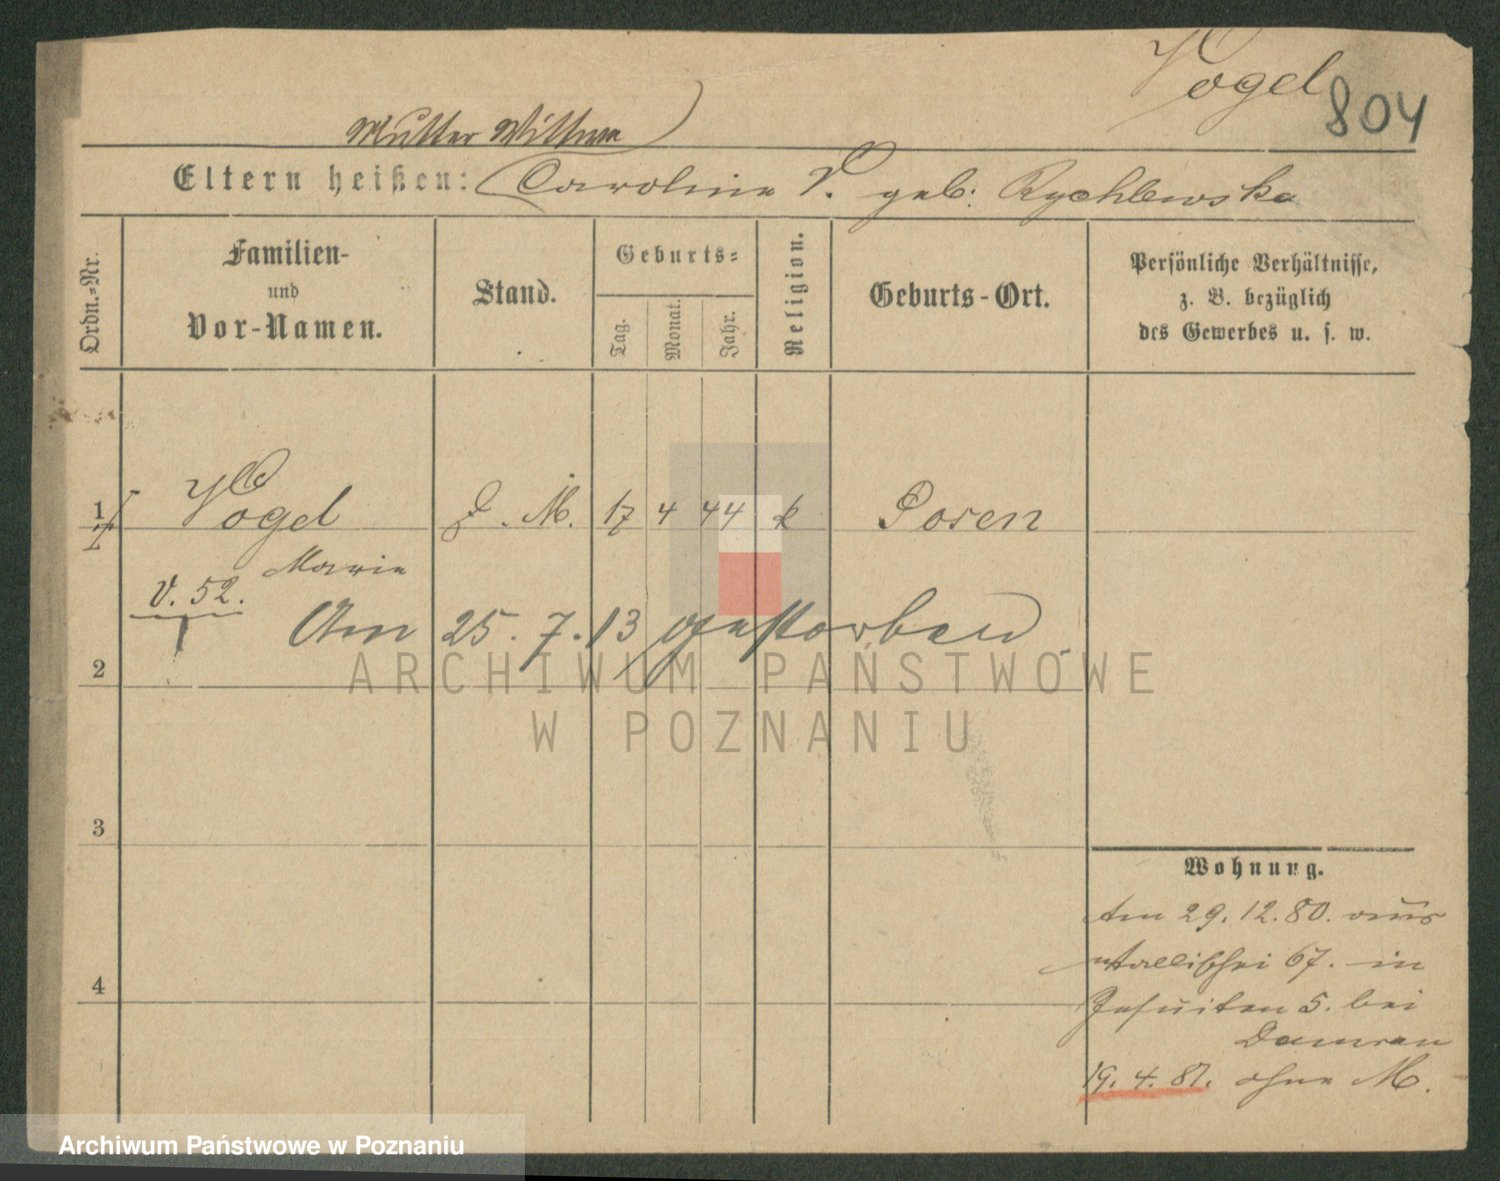 Vogel
804
Mutter Wittwe
Eltern heißen: Caroline V. geb. Rychlewska
Ordn.-Nr.
Familien-
und
Vor-Namen.
Stand.
Geburts-
Tag.
Monat.
Jahr.
Religion.
Geburts-Ort.
Persönliche Verhältnisse,
z. B. bezüglich
des Gewerbes u. s. w.
1 Vogel M. 17 4 44 k Posen
Marie
V. 52.
Am 25. 7. 13 gestorben
2
ARCHIWUM PAŃSTWOWE
W POZNANIU
3
Wohnung.
Am 29. 12. 80. aus
Wallischei 67. in
4
Jesuiten 5. bei
Damrau
19. 4. 81. ohne M.
Archiwum Państwowe w Poznaniu